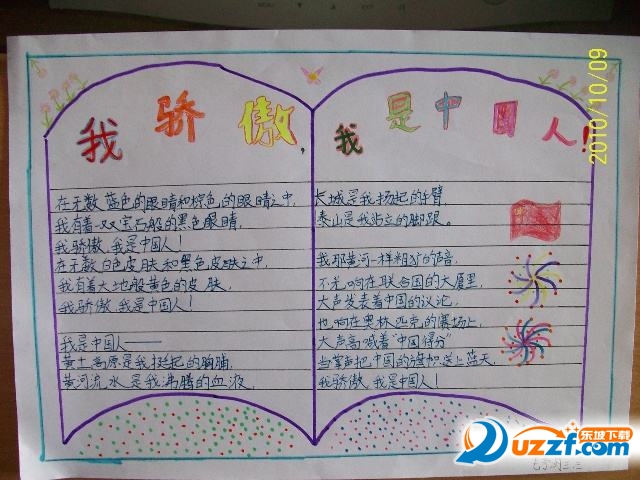 我骄傲,我是中国人!
在无数蓝色的眼睛和棕色的眼睛之中,
我有着一双宝石般的黑色眼睛,
我骄傲,我是中国人!
在无数白色皮肤和黑色皮肤之中,
我有着大地般黄色的皮肤,
我骄傲,我是中国人!
我是中国人——
黄土高原是我挺起的胸脯,
黄河流水是我沸腾的血液,
长城是我扬起的手臂,
泰山是我站立的脚跟。
我那黄河一样粗犷的声音,
不光响在联合国的大厦里,
大声发表着中国的议论,
也响在奥林匹克的赛场上,
大声高喊着"中国得分"
当掌声把中国的旗帜送上蓝天,
我骄傲,我是中国人!
2010/10/09
东坡下载
uzzf.com